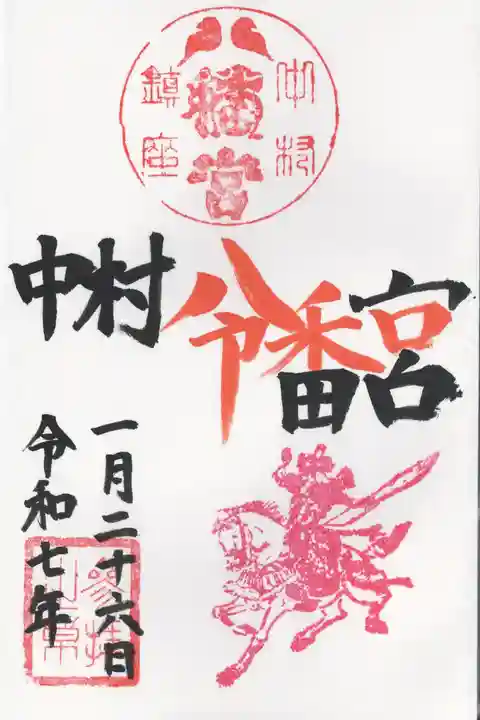 中村
八幡宮
鎮座
中村八幡宮
一月二十六日
令和七年